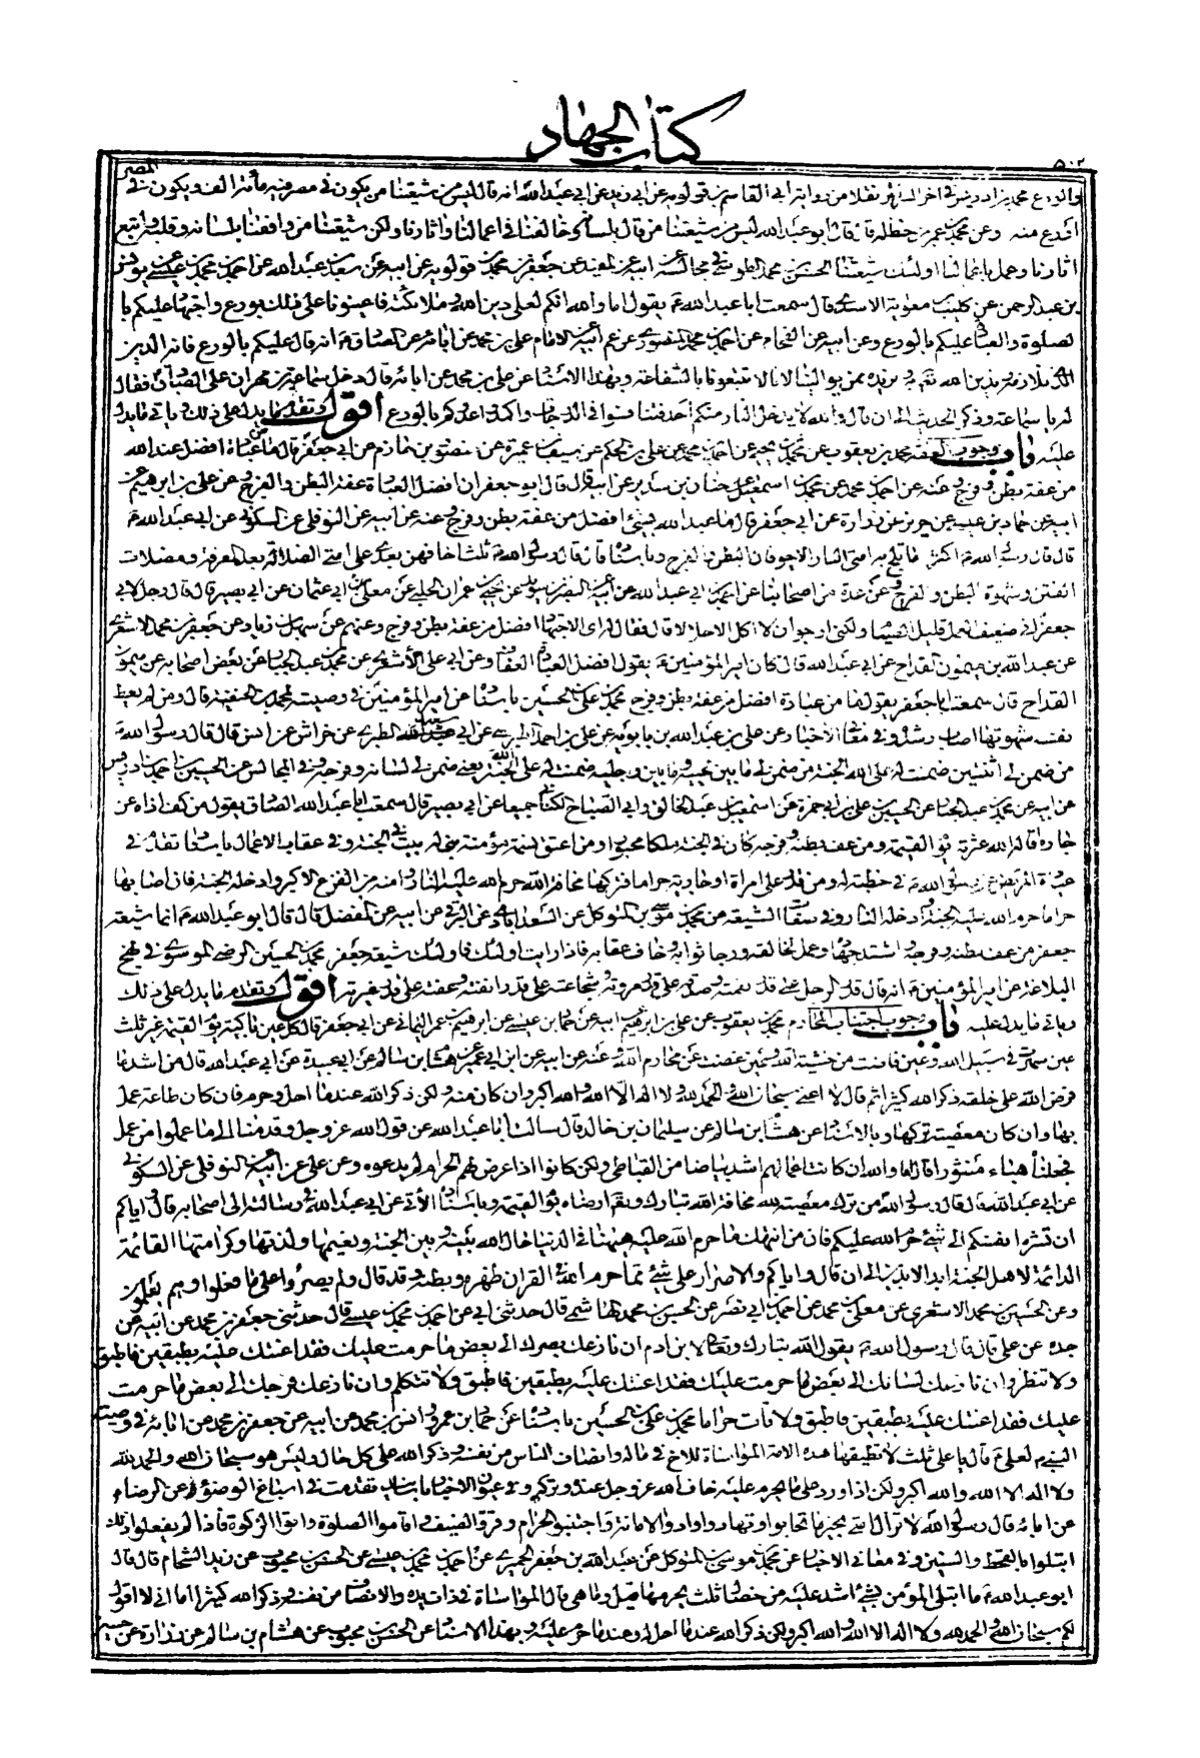 كتاب الجهاد
٥٠٢
بالورع محمد بن ادريس في اخر السرائر نقلا من رواية ابي القاسم بن قولويه عن ابي زيد عن ابي عبد الله انه قال ليس من شيعتنا من يكون في مصر فيه مائة الف ويكون في المصر
اورع منه وعن محمد بن عمر بن حنظلة قال قال ابو عبد الله ليس من شيعتنا من قال بلسانه وخالفنا في اعمالنا واثارنا ولكن شيعتنا من وافقنا بلسانه وقلبه واتبع
اثارنا وعمل باعمالنا اولئك شيعتنا الحسن بن محمد الطوسي في مجالسه عن ابيه عن المفيد عن جعفر بن محمد بن قولويه عن ابيه عن سعد بن عبد الله عن احمد بن محمد بن عيسى عن يونس
بن عبد الرحمن عن كليب بن معوية الاسدي قال سمعت ابا عبد الله ع يقول اما والله انكم لعلى دين الله وملائكته فاعينونا على ذلك بورع واجتهاد عليكم با
لصلوة والعبادة عليكم بالورع وعن ابيه عن الفحام عن احمد بن محمد المنصوري عن عم ابيه عن الامام علي بن محمد عن ابائه عن الصادق ع انه قال عليكم بالورع فانه الدين
الذي نلازمه وندين الله تعالى به ونريده ممن يوالينا لا تتعبونا بالشفاعة وبهذا الاسناد عن علي بن محمد عن ابائه قال دخل سماعة بن مهران على الصادق فقال
له يا سماعة وذكر الحديث الى ان قال والله لا يدخل النار منكم احد فتنافسوا في الدرجات واكمدوا عدوكم بالورع اقول وتقدم ما يدل على ذلك وياتي ما يدل
عليه باب وجوب العفة محمد بن يعقوب عن محمد بن يحيى عن احمد بن محمد عن علي بن الحكم عن سيف بن عميرة عن منصور بن حازم عن ابي جعفر قال ما من عبادة افضل عند الله
من عفة بطن وفرج وعنه عن احمد بن محمد عن محمد بن اسمعيل عن حنان بن سدير عن ابيه قال قال ابو جعفر ان افضل العبادة عفة البطن والفرج وعن علي بن ابرهيم عن
ابيه عن حماد بن عيسى عن حريز عن زرارة عن ابي جعفر قال ما عبد الله بشيء افضل من عفة بطن وفرج وعنه عن ابيه عن النوفلي عن السكوني عن ابي عبد الله ع
قال قال رسول الله ص اكثر ما تلج به امتي النار الاجوفان البطن والفرج وباسناده قال قال رسول الله ص ثلث اخافهن بعدي على امتي الضلالة بعد المعرفة ومضلات
الفتن وشهوة البطن والفرج وعن عدة من اصحابنا عن احمد بن ابي عبد الله عن ابيه عن النضر بن سويد عن يحيى بن عمران الحلبي عن معلى بن ابي عثمان عن ابي بصير قال قال رجل لابي
جعفر اني ضعيف العمل قليل الصيام ولكني ارجو ان لا اكل الا حلالا قال فقال له اي الاجتهاد افضل من عفة بطن وفرج وعنهم عن سهل بن زياد عن جعفر بن محمد الاشعري
عن عبد الله بن ميمون القداح عن ابي عبد الله قال كان امير المؤمنين ع يقول افضل العبادة العفاف وعن ابي علي الاشعري عن محمد بن عبد الجبار عن بعض اصحابه عن ميمون
القداح قال سمعت ابا جعفر يقول ما من عبادة افضل من عفة بطن وفرج محمد بن علي بن الحسين باسناده عن امير المؤمنين في وصيته لمحمد بن الحنفية قال ومن لم يعط
نفسه شهوتها اصاب رشده وفي معاني الاخبار عن علي بن عبد الله بن بابويه عن علي بن احمد الطبري عن ابي سعيد الطبري عن خراش عن انس قال قال رسول الله ص
من ضمن لي اثنتين ضمنت له على الله الجنة من ضمن لي ما بين لحييه وما بين رجليه ضمنت له على الله الجنة يعني ضمن لي لسانه وفرجه وفي المجالس عن الحسين بن احمد بن ادريس
عن ابيه عن محمد بن عبد الجبار عن الحسين بن علي بن ابي حمزة عن اسمعيل بن عبد الخالق وابي الصباح الكناني جميعا عن ابي بصير قال سمعت ابا عبد الله الصادق يقول من كف اذاه عن
جاره اقاله الله عثرته يوم القيمة ومن عف بطنه وفرجه كان في الجنة ملكا محبورا ومن اعتق نسمة مؤمنة بني له بيت في الجنة وفي عقاب الاعمال باسناد تقدم في
عيادة المريض عن رسول الله ص في خطبة له ومن قدر على امراة او جارية حراما فتركها مخافة الله حرم الله عليه النار وامنه من الفزع الاكبر وادخله الجنة فان اصابها
حراما حرم الله عليه الجنة وادخله النار وفي صفات الشيعة عن محمد بن موسى بن المتوكل عن السعد ابادي عن البرقي عن ابيه عن المفضل قال قال ابو عبد الله ع انما شيعة
جعفر من عف بطنه وفرجه واشتد جهاده وعمل لخالقه ورجا ثوابه وخاف عقابه فاذا رايت اولئك فاولئك شيعة جعفر محمد بن الحسين الرضي الموسوي في نهج
البلاغة عن امير المؤمنين ع انه قال قدر الرجل على قدر همته وصدقه على قدر مروته وشجاعته على قدر انفته وعفته على قدر غيرته اقول وتقدم ما يدل على ذلك
وياتي ما يدل عليه باب وجوب اجتناب المحارم محمد بن يعقوب عن علي بن ابرهيم عن ابيه عن حماد بن عيسى عن ابرهيم بن عمر اليماني عن ابي جعفر قال كل عين باكية يوم القيمة غير ثلث
عين سهرت في سبيل الله وعين فاضت من خشية الله وعين غضت عن محارم الله وعنه عن ابيه عن ابن ابي عمير عن هشام بن سالم عن ابي عبيدة عن ابي عبد الله قال من اشد ما
فرض الله على خلقه ذكر الله كثيرا ثم قال لا اعني سبحان الله والحمد لله ولا اله الا الله والله اكبر وان كان منه ولكن ذكر الله عندما احل وحرم فان كان طاعة عمل
بها وان كان معصية تركها وبالاسناد عن هشام بن سالم عن سليمان بن خالد قال سالت ابا عبد الله عن قول الله عز وجل وقدمنا الى ما عملوا من عمل
فجعلناه هباء منثورا قال اما والله ان كانت اعمالهم اشد بياضا من القباطي ولكن كانوا اذا عرض لهم الحرام لم يدعوه وعن علي عن ابيه عن النوفلي عن السكوني
عن ابي عبد الله قال قال رسول الله من ترك معصية لله مخافة الله تبارك وتعالى ارضاه يوم القيمة وباسناده الاتي عن ابي عبد الله في رسالته الى اصحابه قال واياكم
ان تشره انفسكم الى شيء حرم الله عليكم فان من انتهك ما حرم الله عليه ههنا في الدنيا حال الله بينه وبين الجنة ونعيمها ولذتها وكرامتها القائمة
الدائمة لاهل الجنة ابد الابدين الى ان قال واياكم والاصرار على شيء مما حرم الله في القران ظهره وبطنه وقد قال ولم يصروا على ما فعلوا وهم يعلمون
وعن الحسين بن محمد الاشعري عن معلى بن محمد عن احمد بن ابي نصر عن الحسين بن محمد الهاشمي قال حدثني ابي عن احمد بن محمد بن عيسى قال حدثني جعفر بن محمد عن ابيه عن
جده عن علي قال قال رسول الله ص يقول الله تبارك وتعالى لابن ادم ان نازعك بصرك الى بعض ما حرمت عليك فقد اعنتك عليه بطبقين فاطبق
ولا تنظر وان نازعك لسانك الى بعض ما حرمت عليك فقد اعنتك عليه بطبقين فاطبق ولا تتكلم وان نازعك فرجك الى بعض ما حرمت
عليك فقد اعنتك عليه بطبقين فاطبق ولا تات حراما محمد بن علي بن الحسين باسناده عن حماد بن عمرو وانس بن محمد عن ابيه عن جعفر بن محمد عن ابائه في وصية
النبي ص لعلي ع قال يا علي ثلث لا تطيقها هذه الامة المواساة للاخ في ماله وانصاف الناس من نفسه وذكر الله على كل حال وليس هو سبحان الله والحمد لله
ولا اله الا الله والله اكبر ولكن اذا ورد على ما يحرم عليه خاف الله عز وجل عنده وتركه وفي عيون الاخبار باسانيد تقدمت في اسباغ الوضوء عن الرضا ع
عن ابائه قال رسول الله لا تزال امتي بخير ما تحابوا وتهادوا وادوا الامانة واجتنبوا الحرام وقروا الضيف واقاموا الصلوة واتوا الزكوة فاذا لم يفعلوا ذلك
ابتلوا بالقحط والسنين وفي معاني الاخبار عن محمد بن موسى بن المتوكل عن عبد الله بن جعفر الحميري عن احمد بن محمد بن عيسى عن الحسن بن محبوب عن زيد الشحام قال قال
ابو عبد الله ع ما ابتلي المؤمن بشيء اشد عليه من خصال ثلث يحرمها قيل وما هي قال المواساة في ذات يده والانصاف من نفسه وذكر الله كثيرا اما اني لا اقول
لكم سبحان الله والحمد لله ولا اله الا الله والله اكبر ولكن ذكر الله عند ما احل له وعند ما حرم عليه وبهذا الاسناد عن الحسن بن محبوب عن هشام بن سالم عن زرارة عن حسين